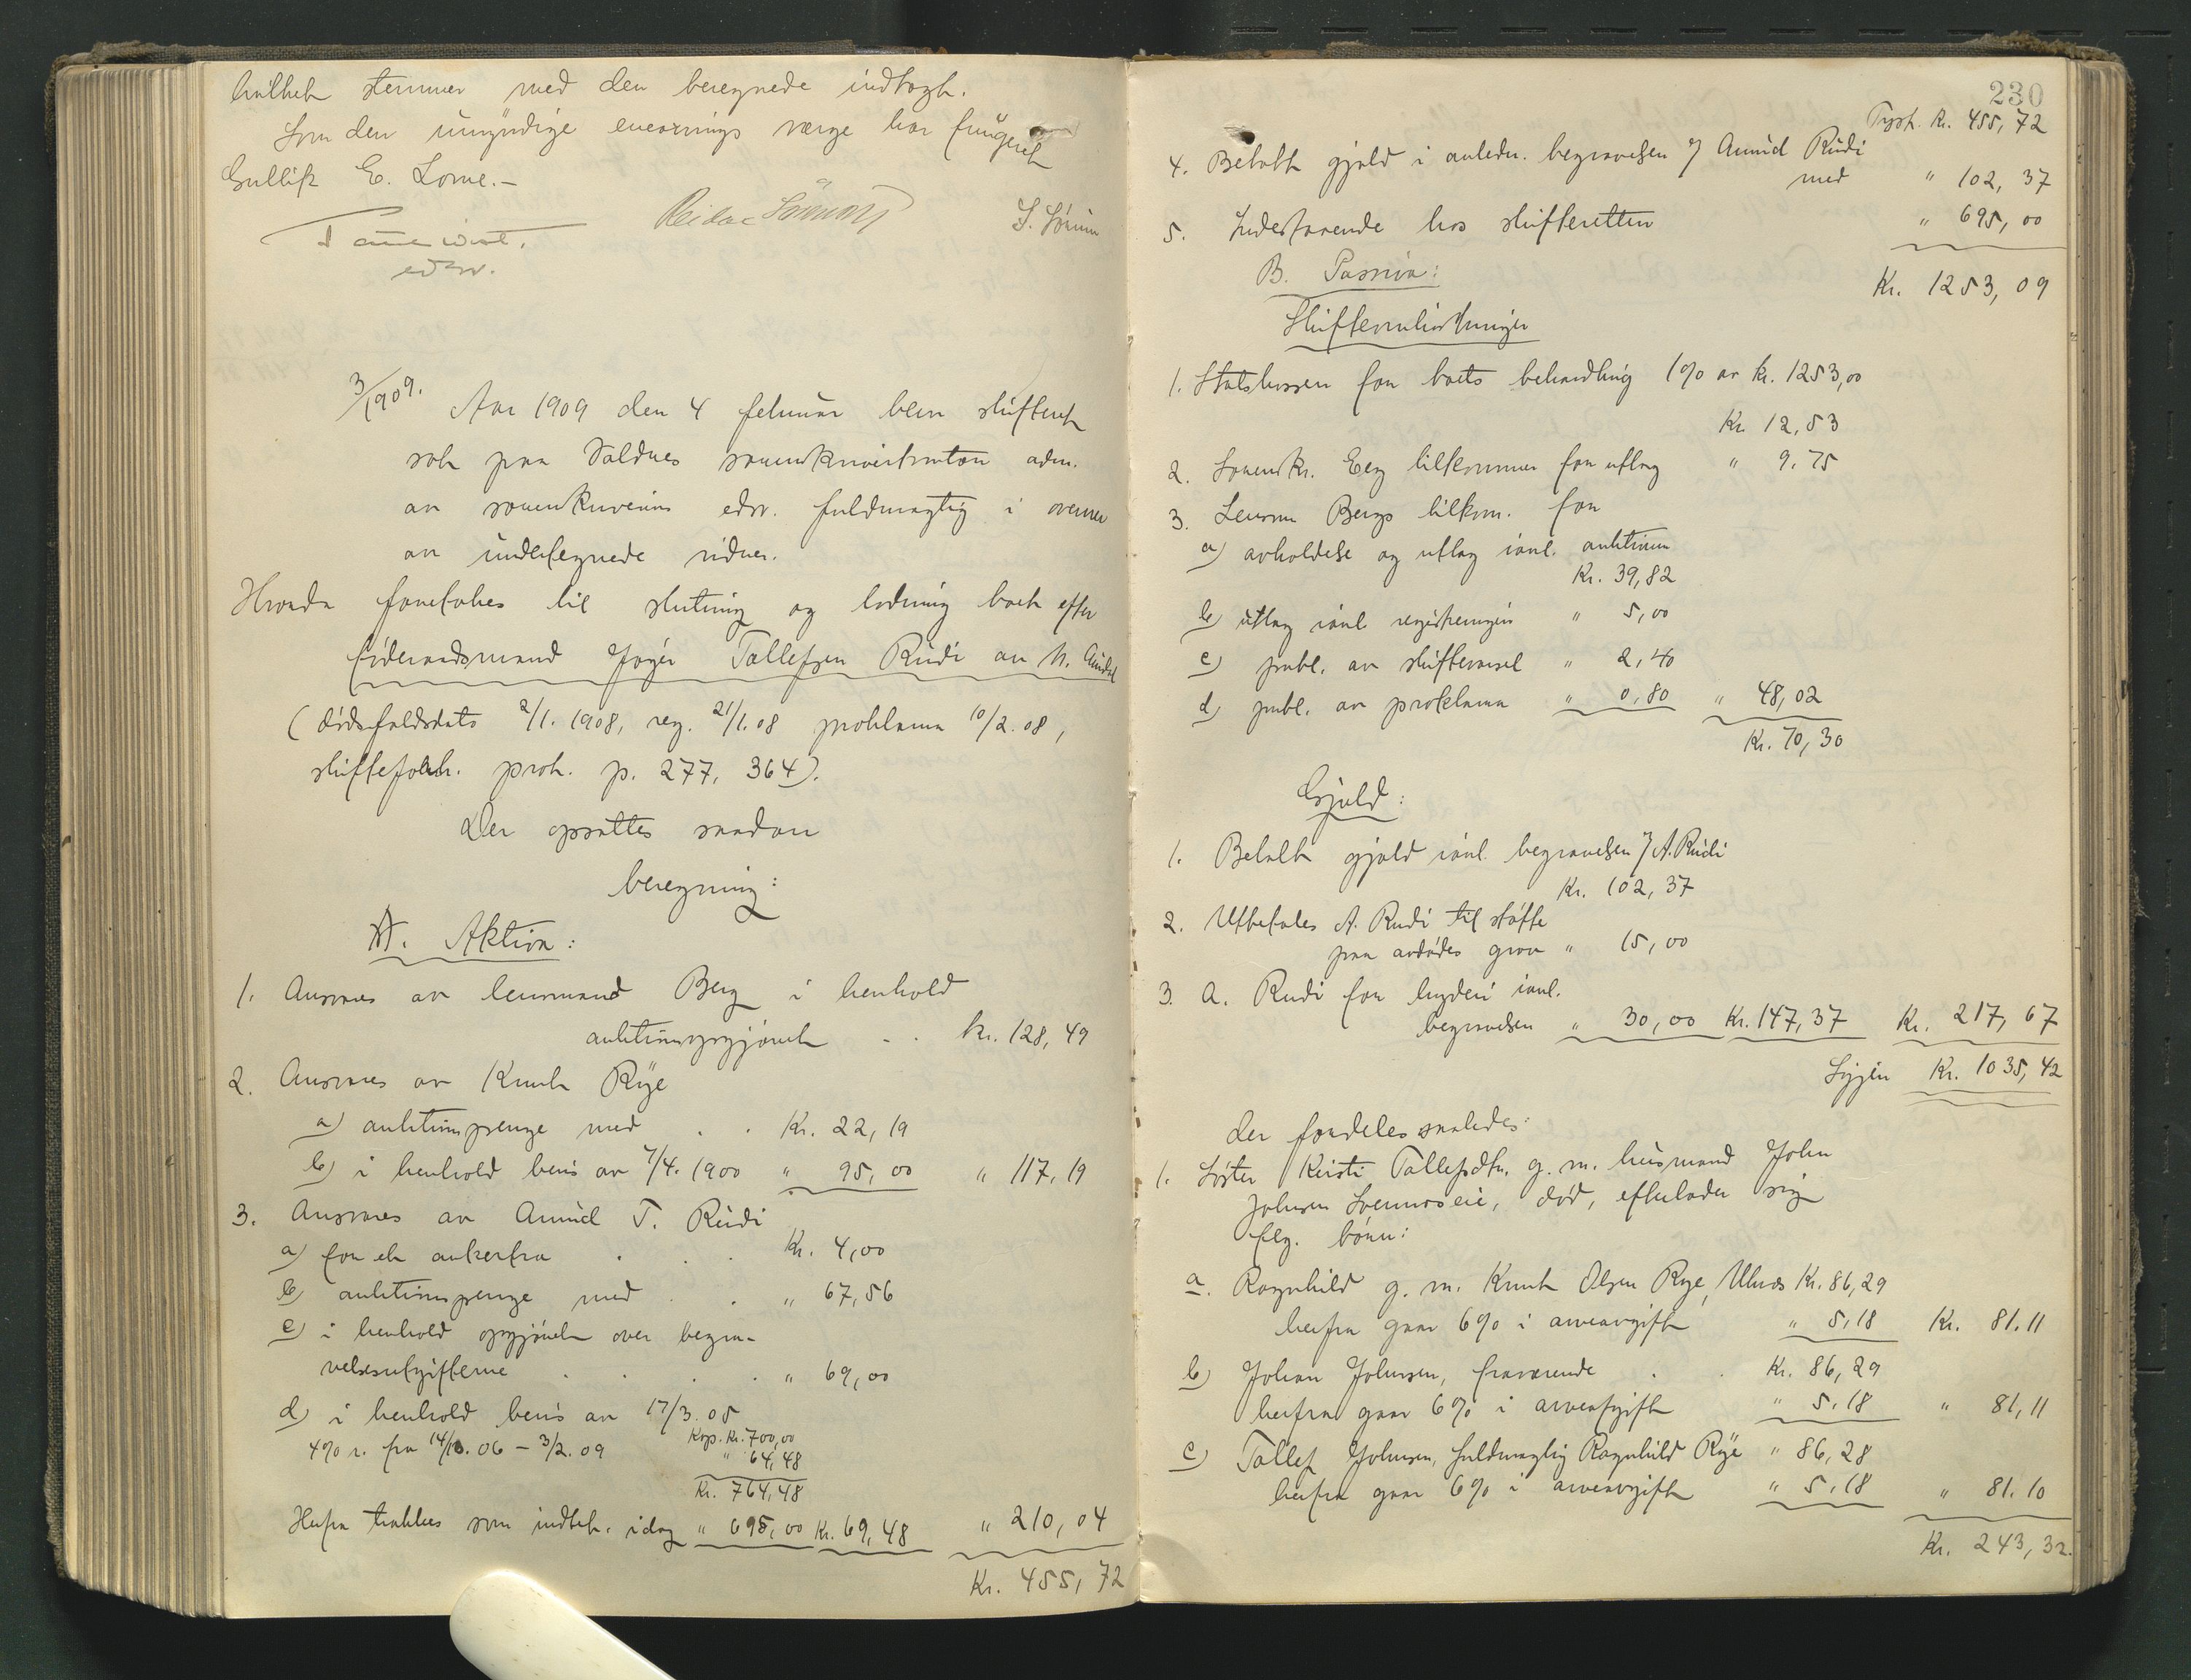 hvilket stemmer med den beregnede indtægt.
Som den umyndige enearvings værge har fungeret
Gullik E. Lome.-
edsv.
Reidar
S.
3/1909.
Aar 1909 den 4 februar blev skifteret
sat paa Valdres sorenskriverkontor adm.
av sorenskriverens edsv. fuldmægtig i overvær
av undertegnede vidner.
Hvorda foretokes til slutning og lodning boet efter
føderaadsmand Jøger Tollefsen Rudi av N. Aurdal
(dødsfaldsdato 2/1. 1908, reg. 21/1.08 proklama 10/2.08,
skifteforh. prot. p. 277, 364).
Der opsattes saadan
beregning:
A. Aktiva:
1. Ansvares av lensmand Berg i henhold
auktionsopgjøret . . kr. 128,49
2. Ansvares av Knut Rye
a) auktionspenge med . . Kr. 22,19
b) i henhold bevis av 7/4. 1900 " 95,00 " 117,19
3. Ansvares av Amund T. Rudi
a) for et ankerfra . . Kr. 4,00
b) auktionspenge med . . " 67,56
c) i henhold opgjøret over begra-
velsesutgifterne . . . . " 69,00
d) i henhold bevis av 17/3.05
Kap. Kr. 700,00
4% r. fra 14/10.06 - 3/2.09 " 64,48
Kr. 764,48
Herfra trækkes som indbet. idag " 695,00 Kr. 69,48 " 210,04
Kr. 455,72
230
Trpt. Kr. 455,72
4. Betalt gjæld i anledn. begravelsen v/ Amund Rudi
med " 102,37
5. Indestaaende hos skifteretten " 695,00
Kr. 1253,09
B. Passiva:
Skifteomkostninger
1. Statskassen for boets behandling 1% av kr. 1253,00
Kr. 12,53
2. Sorenskr. Eeg tilkommer for utlæg " 9.75
3. Lensm. Bergs tilkom. for
a) avholdelse og utlæg ianl. auktionen
Kr. 39,82
b) utlæg ianl. registreringen " 5,00
c) publ. av skiftevarsel " 2,40
d) publ. av proklama " 0,80 " 48,02
Kr. 70,30
Gjæld:
1. Betalt gjæld ianl. begravelsen v/ A. Rudi
Kr. 102,37
2. Utbetales A. Rudi til støtte
paa avdødes grav " 15,00
3. A. Rudi for bryderi ianl.
begravelsen " 30,00 Kr. 147,37 Kr. 217,67
Igjen Kr. 1035,42
der fordeles saaledes:
1. Søster Kirsti Tollefsdtr. g. m. husmand John
Johnsen Svennæseie, død, efterlader sig
flg. børn:
a. Ragnhild g. m. Knut Olsen Rye, Ulnæs Kr. 86,29
herfra gaar 6% i arveavgift " 5,18 Kr. 81.11
b) Johan Johnsen, fraværende . . Kr. 86,29
herfra gaar 6% i arveafgift " 5,18 " 81,11
c) Tollef Johnsen, fuldmægtig Ragnhild Rye " 86,28
herfra gaar 6% i arveavgift " 5,18 " 81.10
Kr. 243,32.